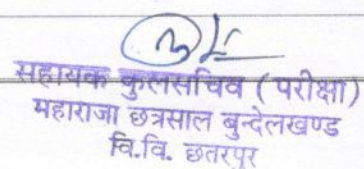 सहायक कुलसचिव (परीक्षा)
महाराजा छत्रसाल बुन्देलखण्ड
वि.वि. छतरपुर